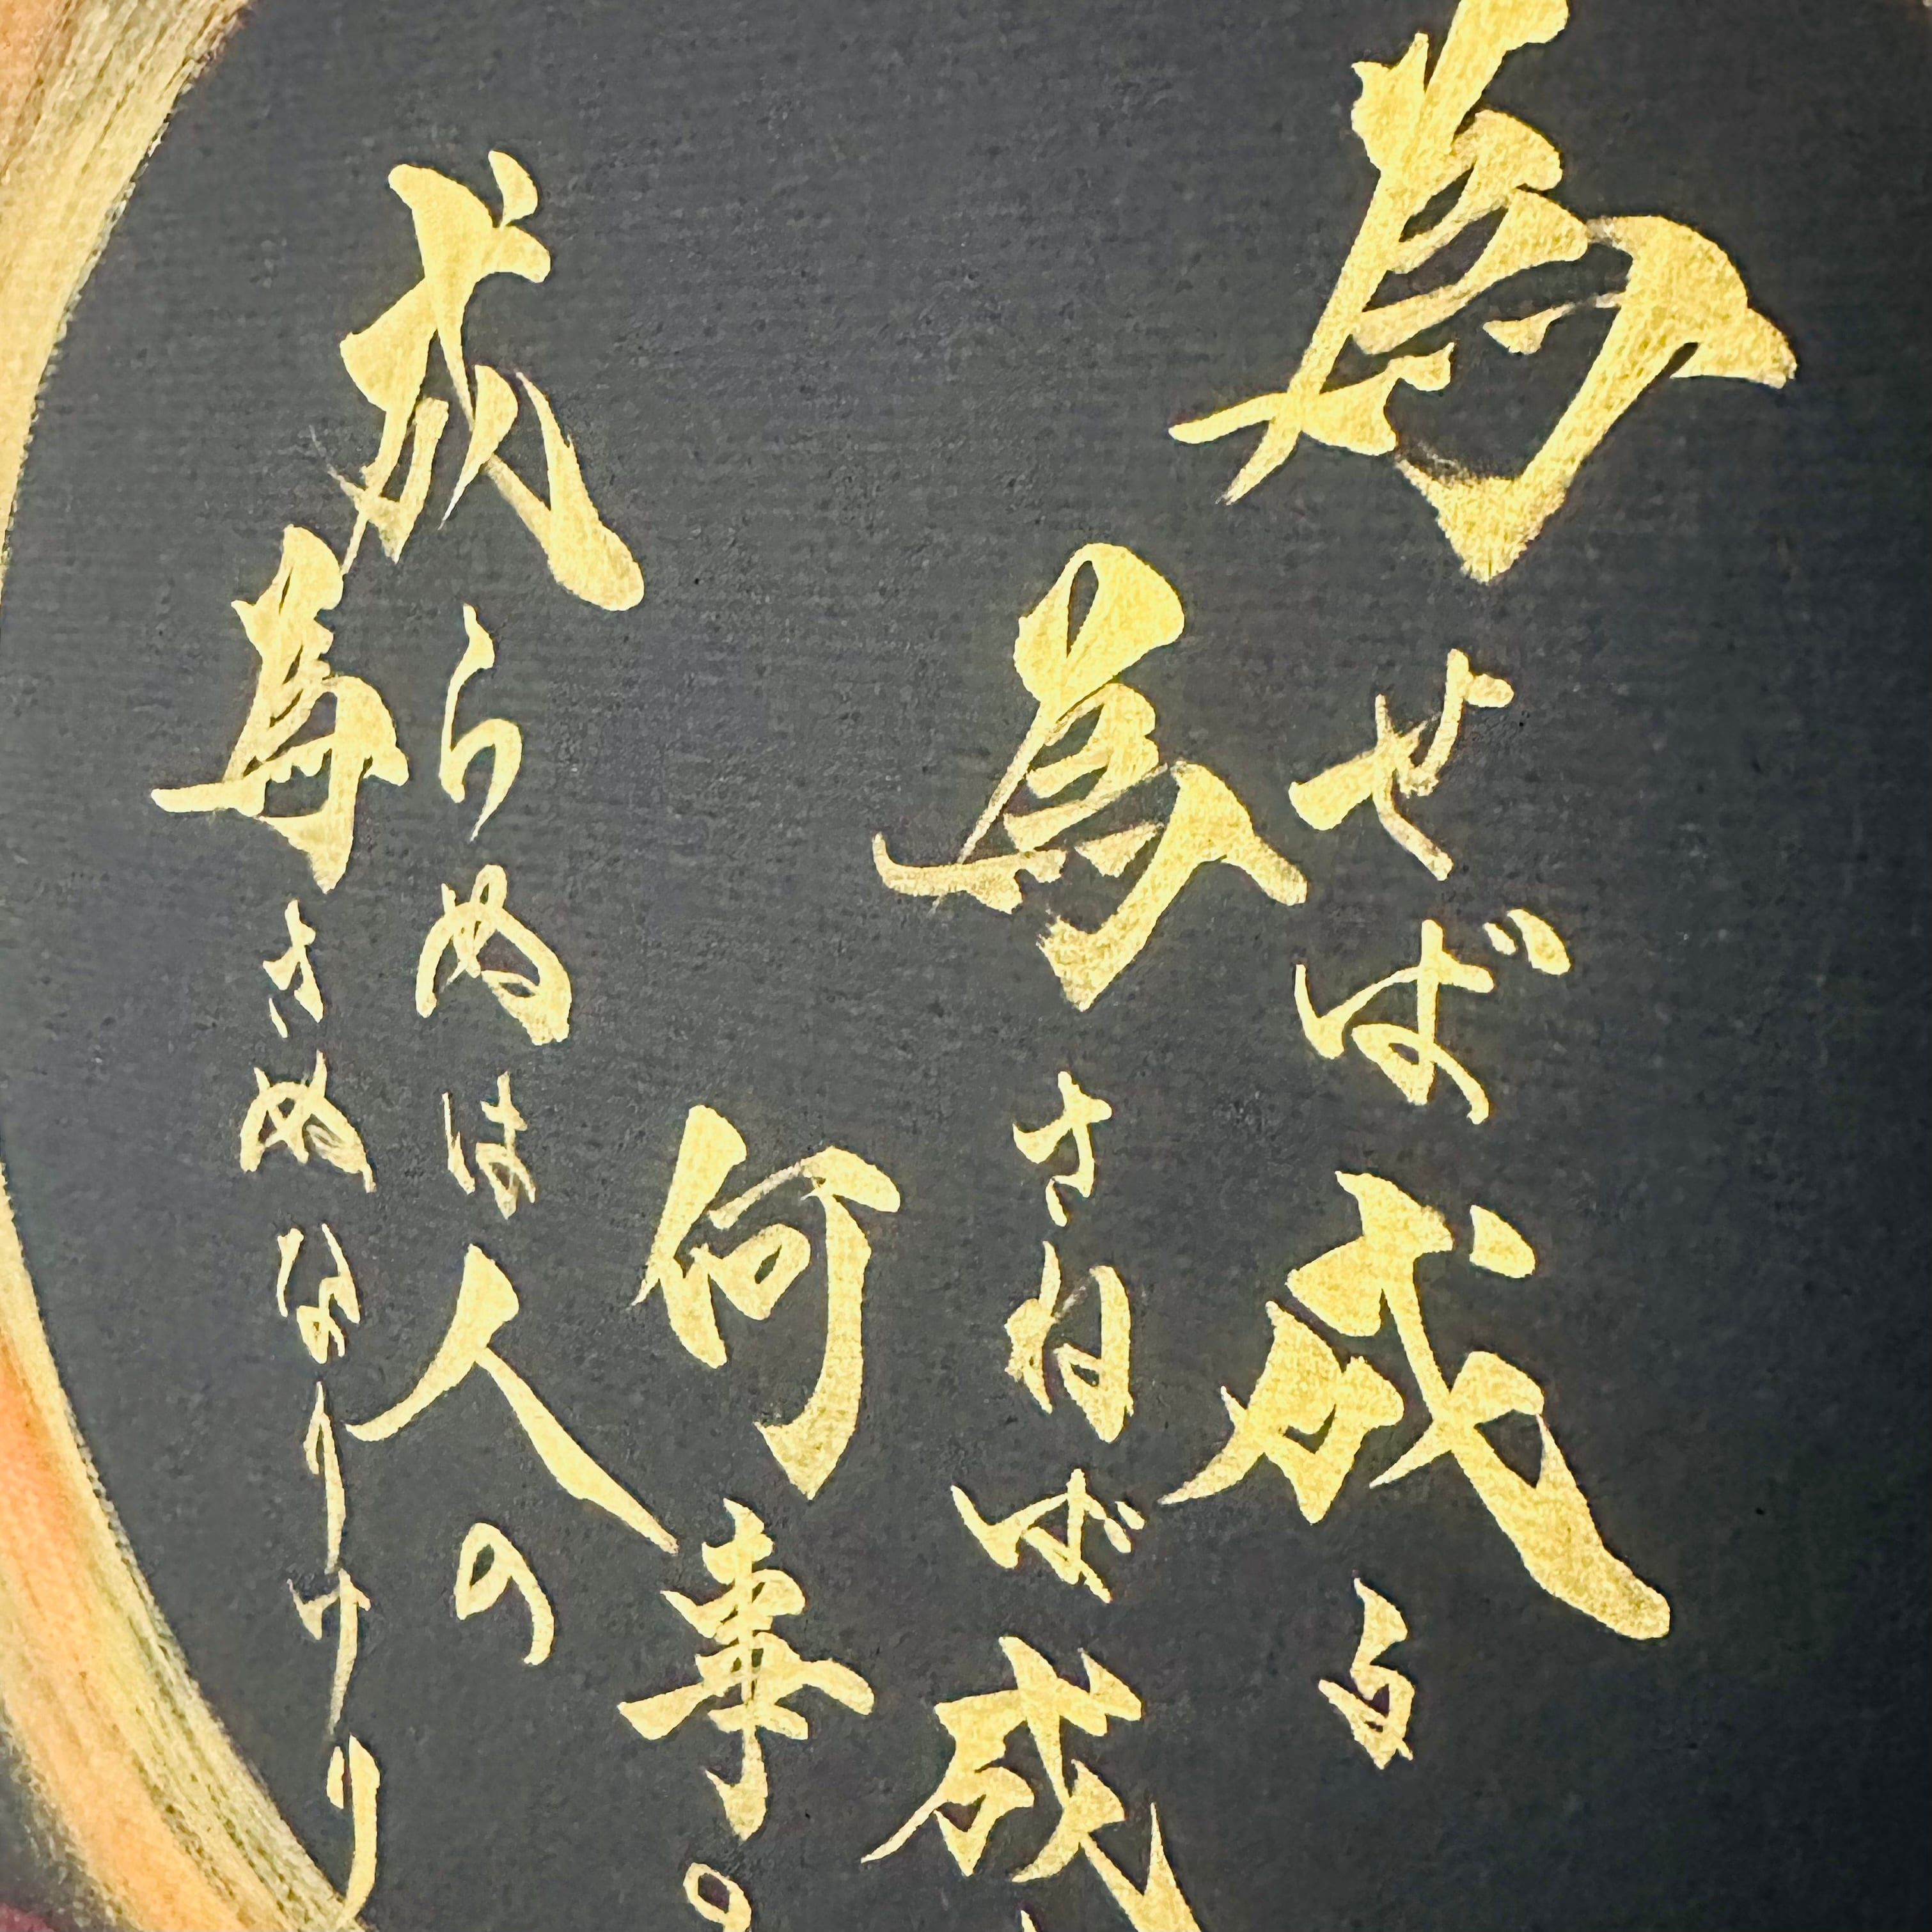 為せば成る
為さねば成
何事
成らぬは人の
為さぬなりけり